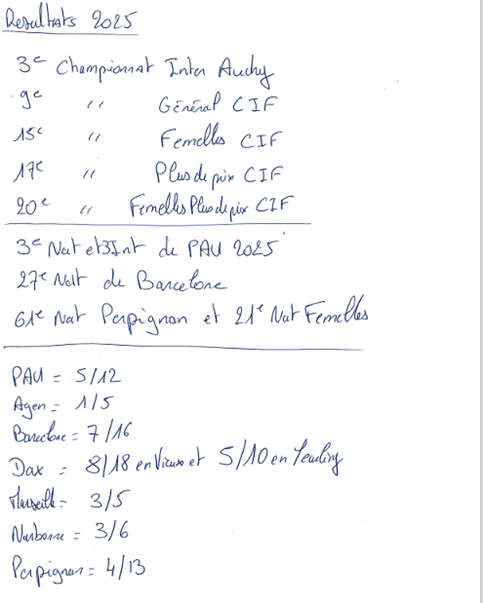 Resultats 2025
3e Championnat Inter Auchy
9e " Général CIF
15e " Femelles CIF
17e " Plus de prix CIF
20e " Femelles Plus de prix CIF
3e Nat et 3 Int de PAU 2025
27e Nat de Barcelone
61e Nat Perpignan et 21e Nat Femelles
PAU = 5/12
Agen = 1/5
Barcelone = 7/16
Dax = 8/18 en Vieux et 5/10 en Yearling
Marseille = 3/5
Narbonne = 3/6
Perpignan = 4/13